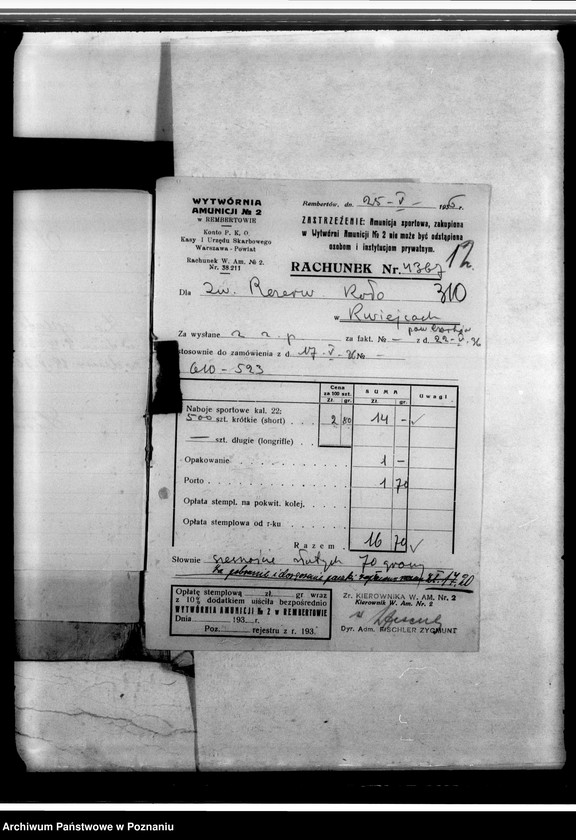 WYTWÓRNIA
AMUNICJI № 2
w REMBERTOWIE
Konto P. K. O.
Kasy I Urzędu Skarbowego
Warszawa - Powiat
Rachunek W. Am. № 2.
Nr. 38.211
Rembertów, dn. 25-V- 1936 r.
ZASTRZEŻENIE: Amunicja sportowa, zakupiona
w Wytwórni Amunicji № 2 nie może być odstąpiona
osobom i instytucjom prywatnym.
12.
RACHUNEK Nr. 4367
310
Dla Zw. Rezerw. Koło
w Kwiejcach
Za wysłane z z. p za fakt. № - z d. 22-V-36
stosownie do zamówienia z d. 17-V-36 № -
610-593
Cena za 100 szt. SUMA Uwagi
Zł. gr. Zł. gr.
Naboje sportowe kal. 22:
500 szt. krótkie (short) 2 80 14 -
— szt. długie (longrifle)
Opakowanie 1 -
Porto 1 70
Opłata stempl. na pokwit. kolej.
Opłata stemplowa od r-ku
Razem 16 70
Słownie szesnaście złotych 70 groszy
Za pobranie i doręczenie paczki
Opłatę stemplową zł. gr wraz
z 10% dodatkiem uiściła bezpośrednio
WYTWÓRNIA AMUNICJI № 2 w REMBERTOWIE
Dnia 193 r.
Poz. rejestru z r. 193
Zr. KIEROWNIKA W. AM. Nr. 2
Kierownik W. Am. № 2
Dyr. Adm. FISCHLER ZYGMUNT
Archiwum Państwowe w Poznaniu